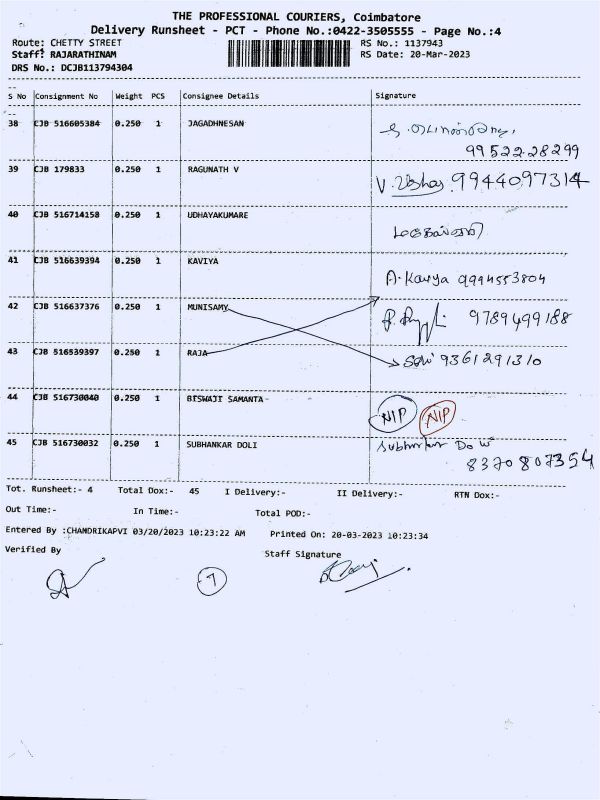 THE PROFESSIONAL COURIERS, Coimbatore
Delivery Runsheet - PCT - Phone No.:0422-3505555 - Page No.:4
Route: CHETTY STREET RS No.: 1137943
Staff: RAJARATHINAM RS Date: 20-Mar-2023
DRS No.: DCJB113794304
S No Consignment No Weight PCS Consignee Details Signature
38 CJB 516605384 0.250 1 JAGADHNESAN
99522 28299
39 CJB 179833 0.250 1 RAGUNATH V V. 9944097314
40 CJB 516714158 0.250 1 UDHAYAKUMARE
41 CJB 516639394 0.250 1 KAVIYA
A. Kavya 9994553804
42 CJB 516637376 0.250 1 MUNISAMY 9789499188
43 CJB 516539397 0.250 1 RAJA 9361291310
44 CJB 516730040 0.250 1 BISWAJI SAMANTA NIP NIP
45 CJB 516730032 0.250 1 SUBHANKAR DOLI Subhankar
8370807354
Tot. Runsheet:- 4 Total Dox:- 45 I Delivery:- II Delivery:- RTN Dox:-
Out Time:- In Time:- Total POD:-
Entered By :CHANDRIKAPVI 03/20/2023 10:23:22 AM Printed On: 20-03-2023 10:23:34
Verified By Staff Signature
7